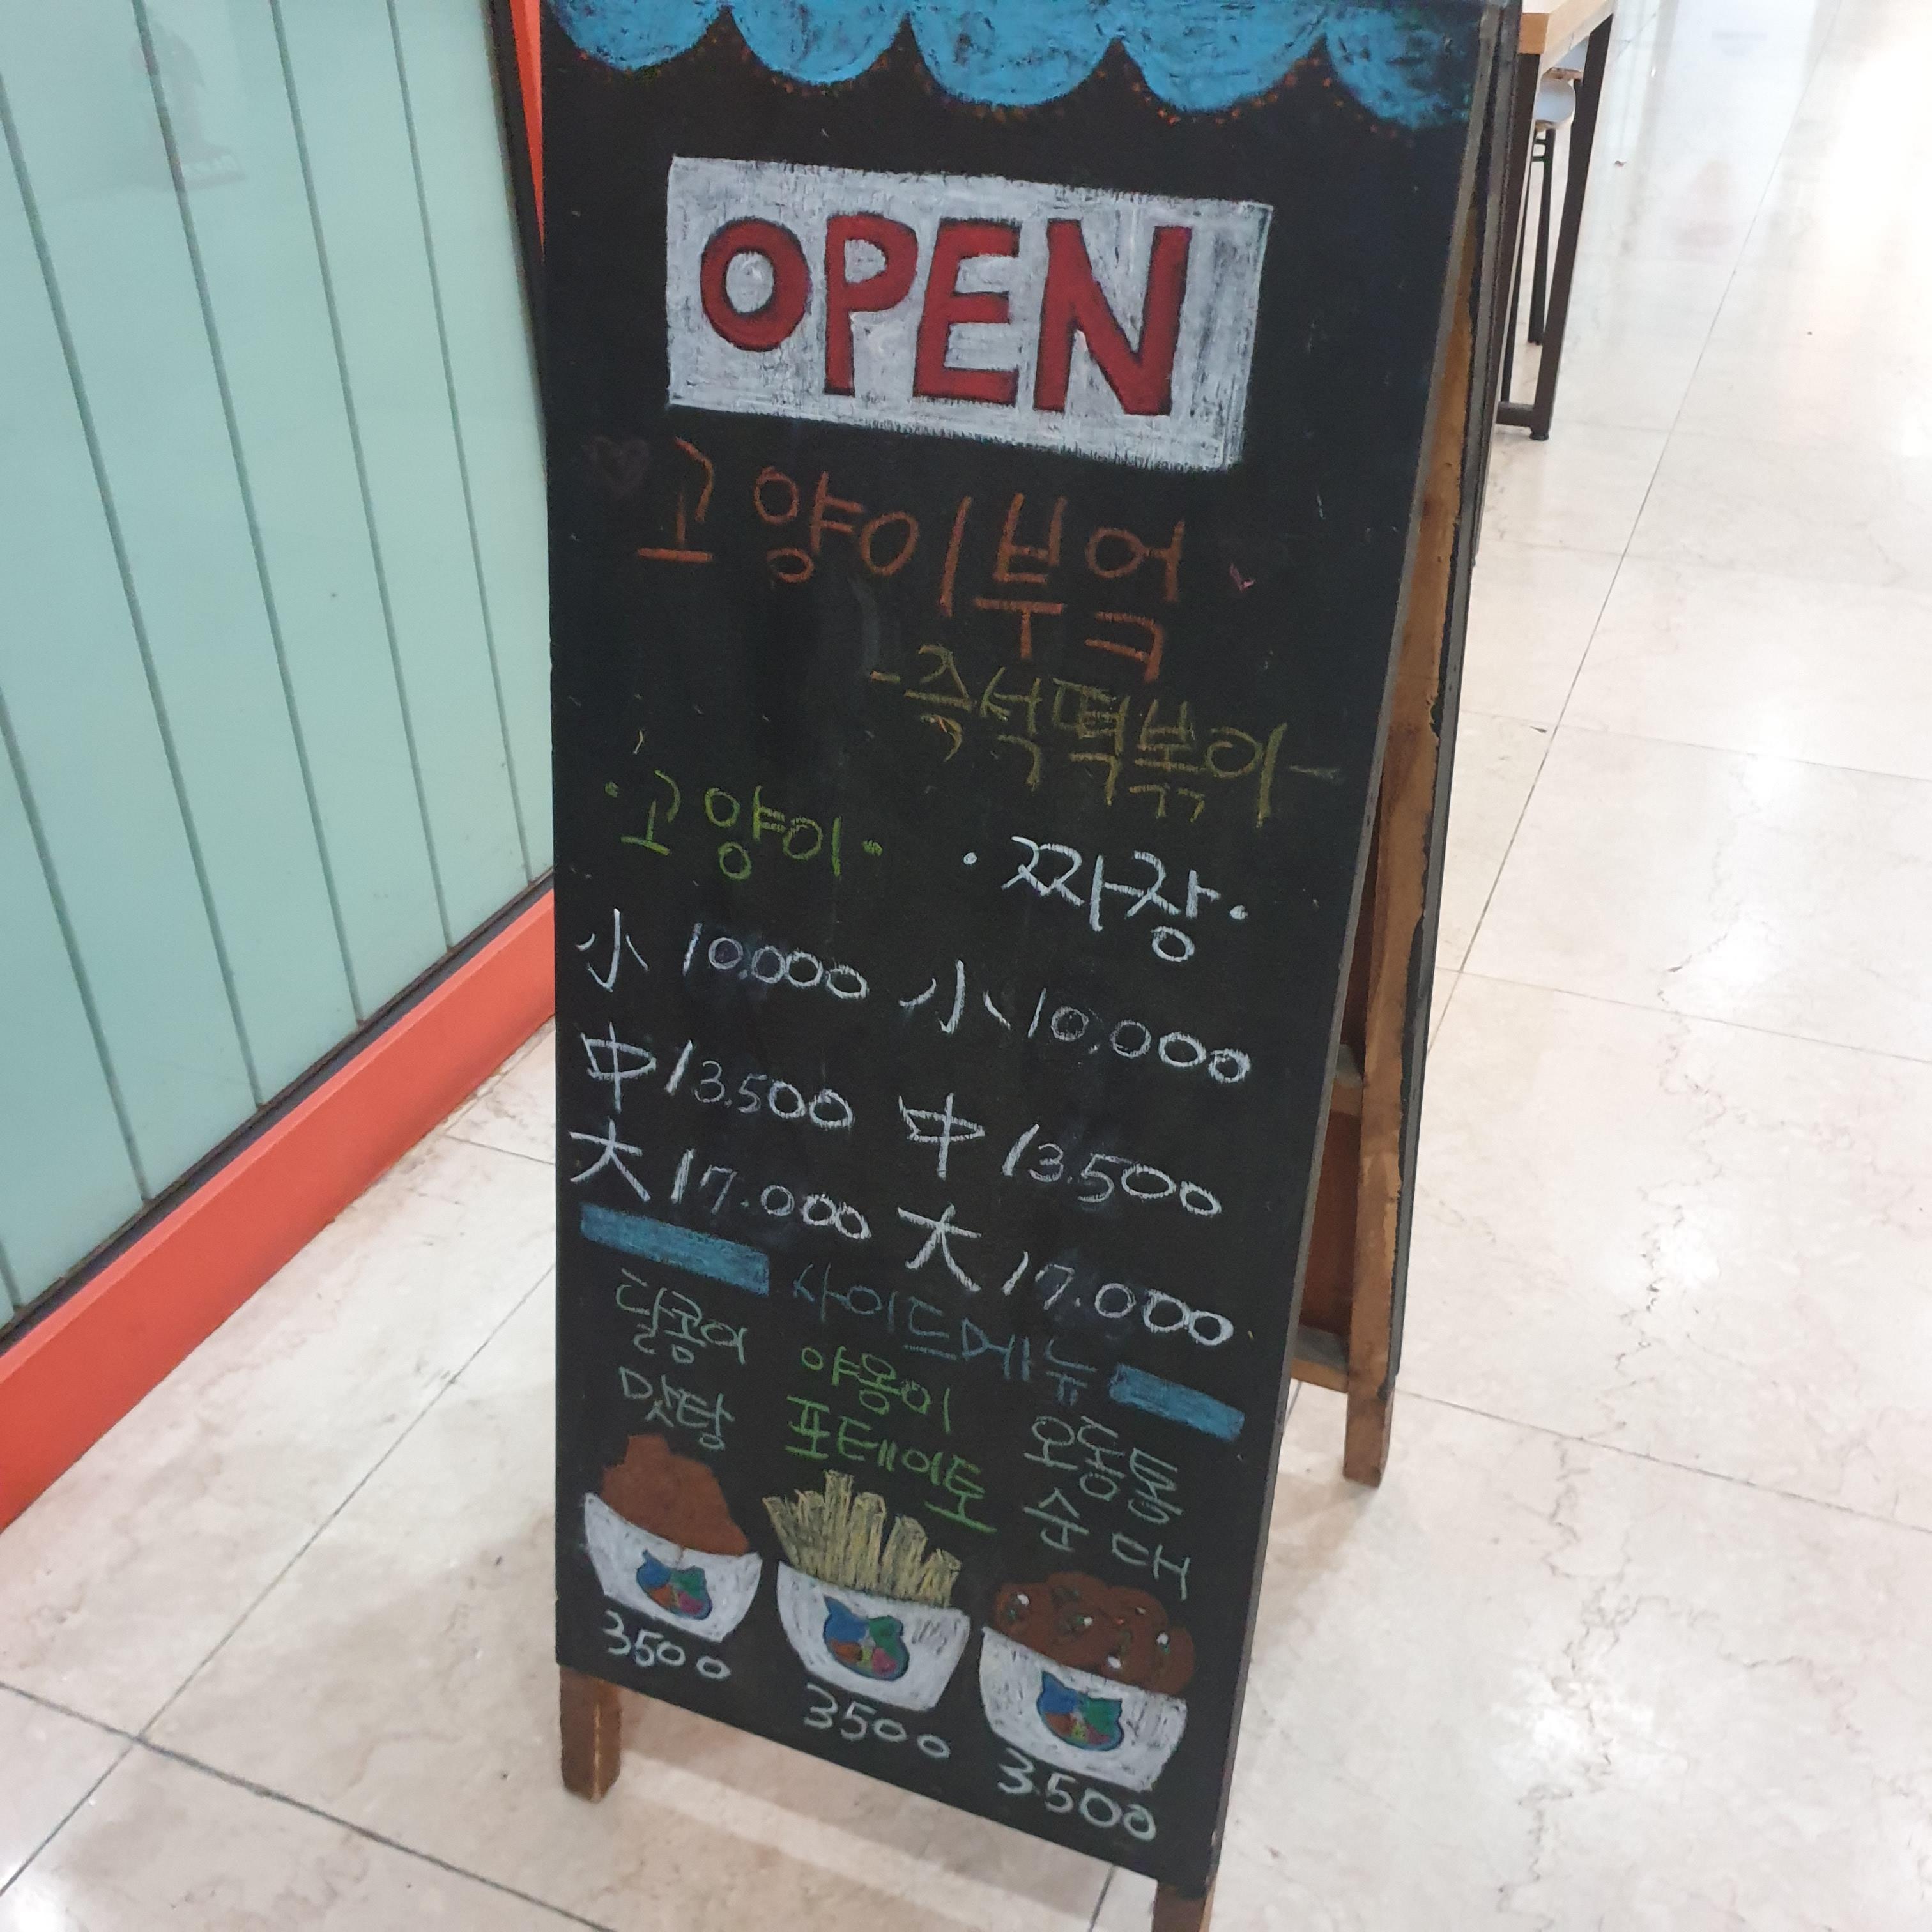 OPEN
고양이부엌
-즉석떡볶이-
·고양이· ·짜장·
小 10,000 小 10,000
中 13,500 中 13,500
大 17.000 大 17.000
사이드메뉴
달콤이 야옹이 오동통
맛탕 포테이토 순대
3500 3500 3.500